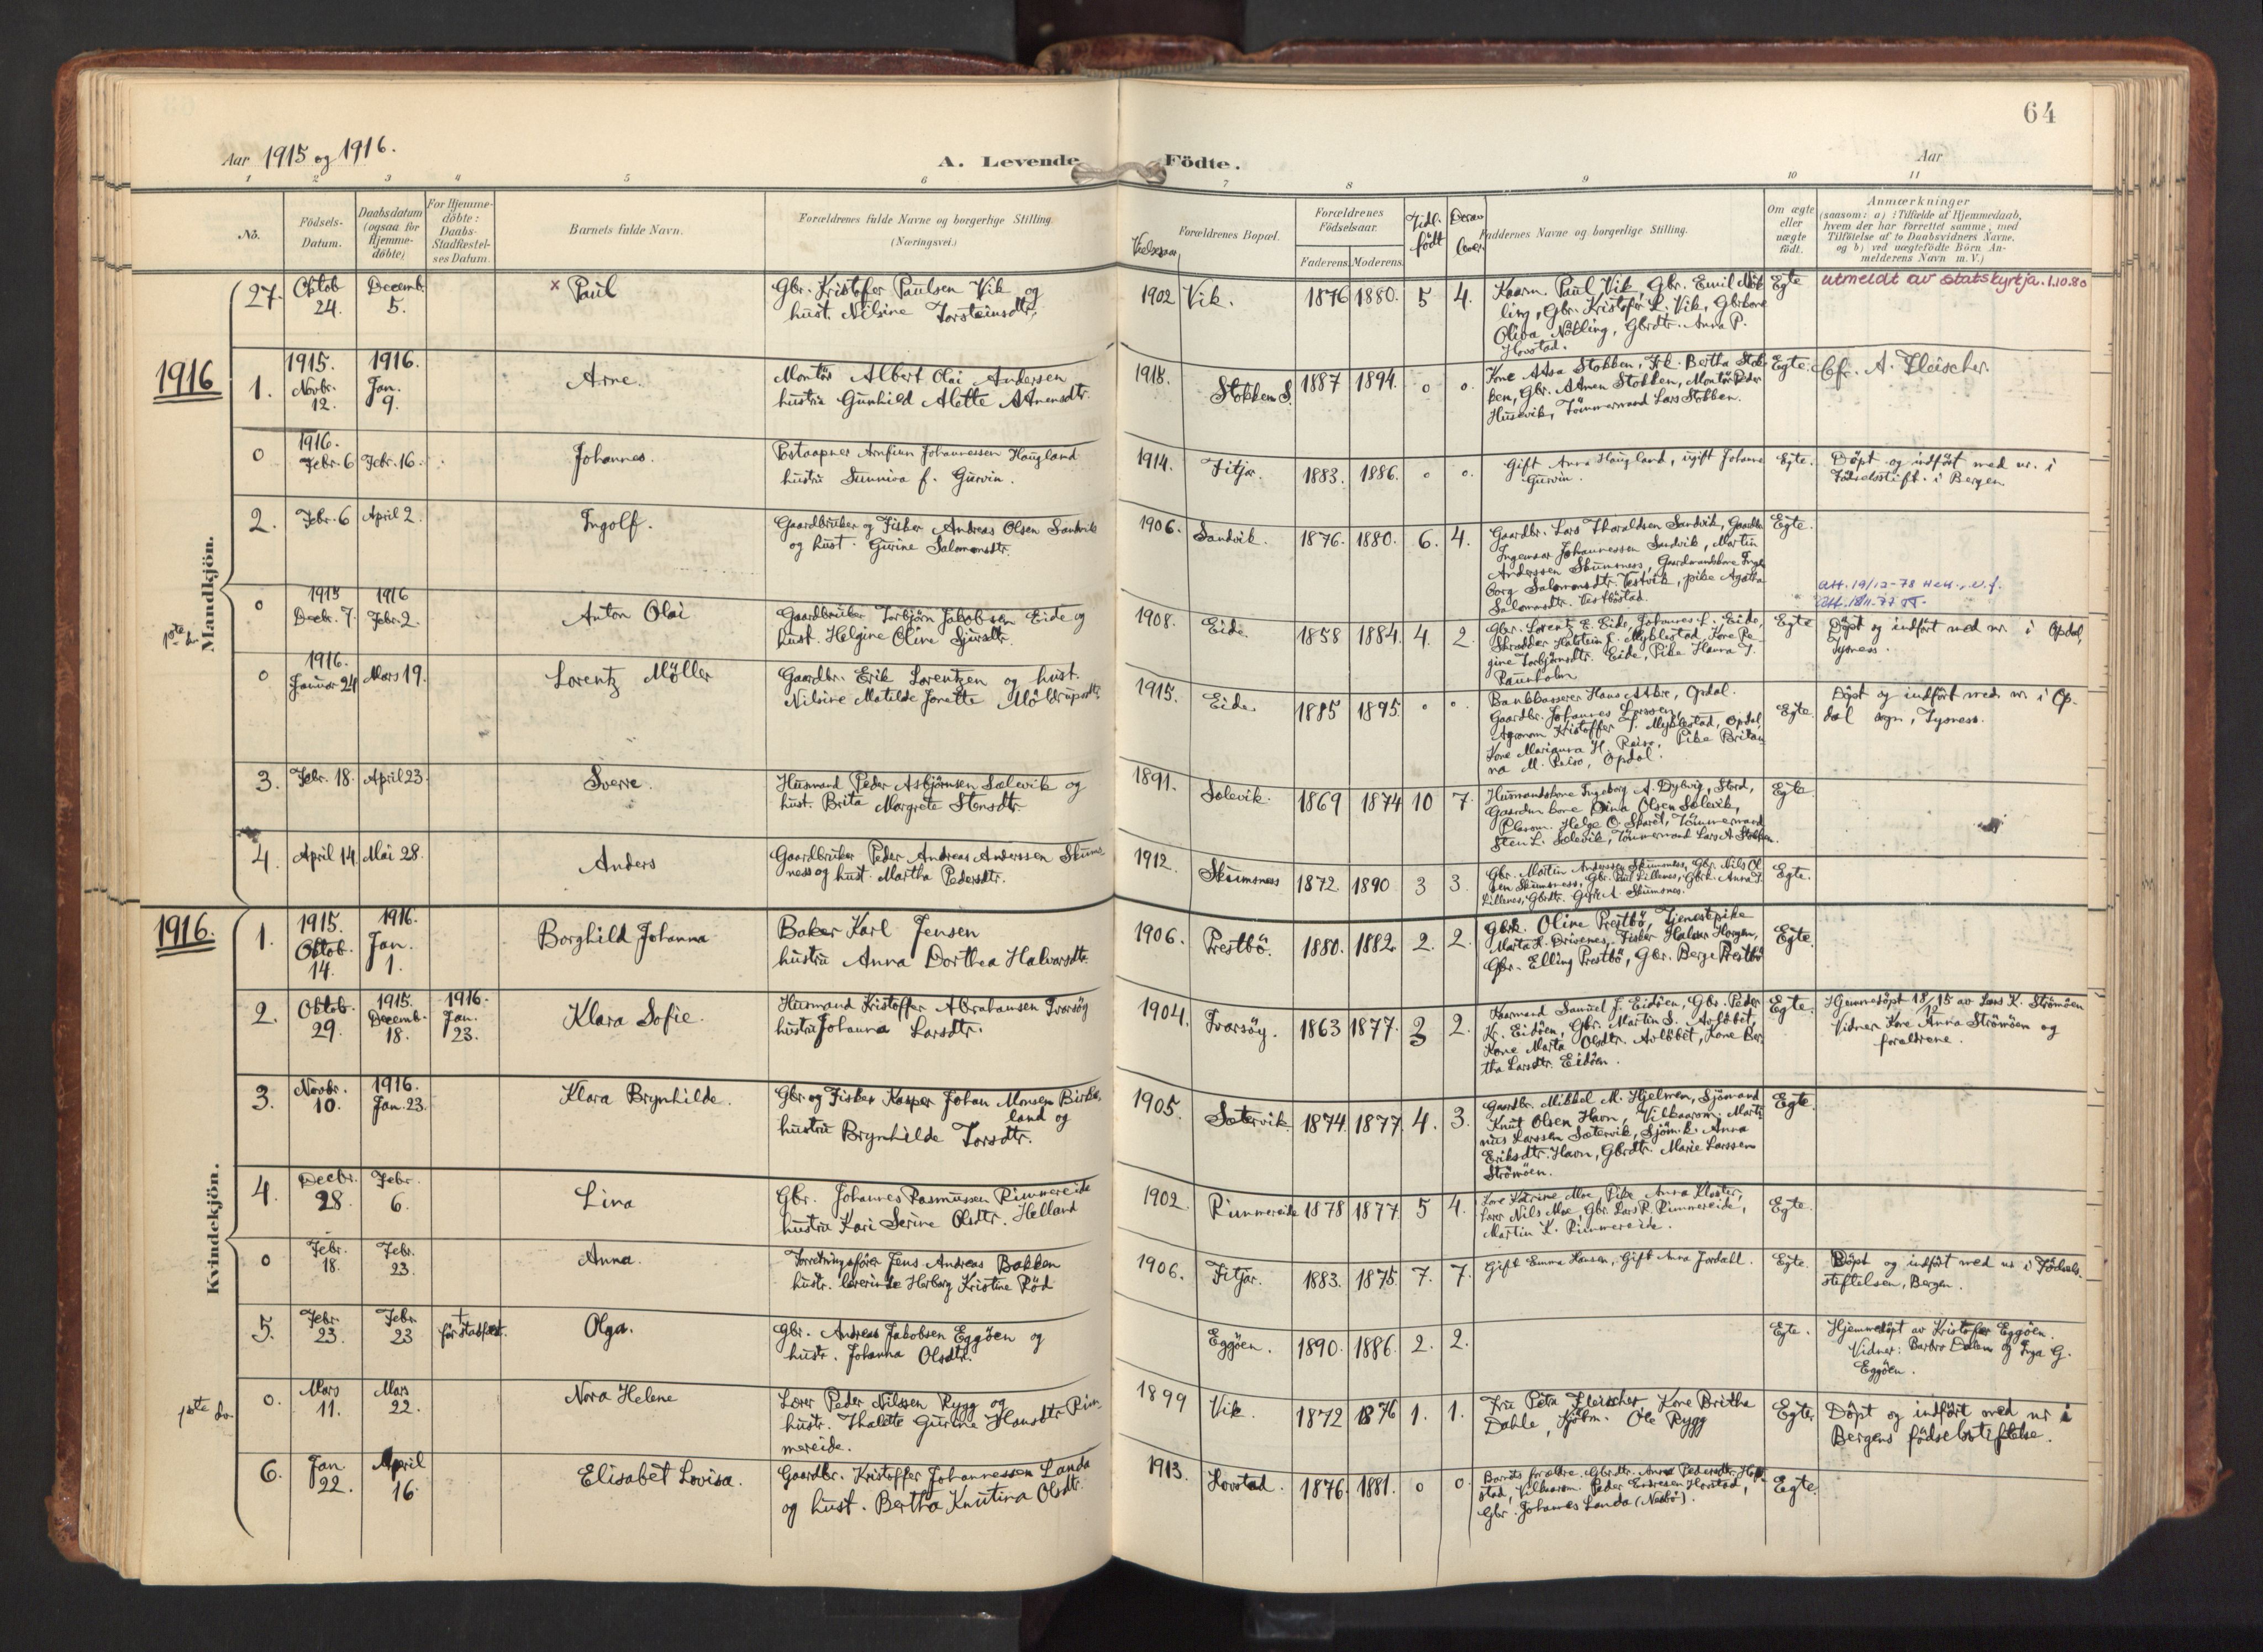 64
Aar 1915 og 1916.
A. Levende Födte.
Aar
1 2 3 4 5 6 7 8 9 10 11
No.
Födsels-Datum.
Daabsdatum (ogsaa for Hjemme-döbte)
For Hjemme-döbte: Daabs-Stadfæstel-ses Datum.
Barnets fulde Navn.
Forældrenes fulde Navne og borgerlige Stilling.
(Næringsvei.)
Forældrenes Bopæl.
Forældrenes Födselsaar.
Faderens. Moderens.
Tidl. født
Derav
Faddernes Navne og borgerlige Stilling.
Om ægte eller uægte födt.
Anmærkninger
(saasom: a) i Tilfælde af Hjemmedaab,
hvem der har forrettet samme, med
Tilföielse af to Daabsvidners Navne,
og b) ved uægtefödte Börn An-
melderens Navn m. V.)
Mandkjön.
27. Oktob. 24. Decemb. 5. x Paul
Gbr. Kristofer Paulsen Vik og
hust. Nilsine Torsteinsdtr.
1902 Vik. 1876 1880. 5 4.
Kaarm. Paul Vik, Gbr. Emil
Gbr. Kristofer L. Vik, Gbrkone
Gbrdtr. Anna P.
Hovstad.
Egte
utmeldt av statskyrkja. 1.10.80
1916
1. 1915. Novbr. 12. 1916. Jan. 9. Arne.
Montör Albert Olai Andersen
hustru Gunhild Alette
Stokken S. 1887 1894. 0 0.
Kone Stokken, Frk. Bertha Stok-
ken, Gbr. Stokken, Montör Peder
Husevik, Tömmermand Lars Stokken.
Egte. Cfr. A. Fleischer.
0 1916. Febr. 6 Febr. 16. Johannes.
Postaapner Arnfinn Johannessen Haugland
hustru Sunniva f. Gurvin.
1914. Fitjar. 1883. 1886. 0 0.
Gift Anna Haugland, ugift Johanne
Gurvin.
Egte. Döpt og indfört med nr. i
Födselsstift. i Bergen
2. Febr. 6 April 2. Ingolf.
Gaardbruker og Fisker Andreas Olsen Sandvik
og hust. Gurine Salomonsdtr.
1906. Sandvik. 1876. 1880. 6. 4.
Gaardbr. Lars Thoraldsen Sandvik, Gaardbr.
Ingemar Johannessen Sandvik, Martin
Anderssen Skumsness, Gaardmandskone Inge-
borg Salomonsdtr. Vestvik, pike Agatha
Salomonsdtr. Vestböstad.
Egte.
1ste dv.
0 1915 Decbr. 7. 1916 Febr. 2. Anton Olai
Gaardbruker Torbjørn Jakobsen Eide og
hust. Helgine Oline Sjursdtr.
1908. Eide. 1858 1884. 4. 2.
Gbr. Lorentz E. Eide, Johannes L. Eide,
Skrædder Halstein J. Myklestad, Kone Re-
gine Torbjørnsdtr. Eide, Pike Hanna J.
Raunholm
Egte Döpt og indfört med nr. i Opdal,
Tysness.
0 1916. Januar 24 Mars 19. Lorentz Möller
Gaardbr. Erik Lorentzen og hust.
Nilsine Matilde Jonette
1915. Eide 1885 1895. 0 0.
Bankkasserer Hans Opdal.
Gaardbr. Johannes Larssen,
Agronom Kristoffer J. Myklestad, Opdal,
Kone Marianna H. Reiso, Pike Britan-
na M. Reiso, Opdal.
Egte. Döpt og indfört med nr. i Op-
dal sogn, Tysness.
3. Febr. 18. April 23. Sverre.
Husmand Peder Asbjørnsen Solevik og
hust. Brita Margrete Stensdtr.
1891. Solevik. 1869 1874 10 7.
Husmandskone Ingeborg A. Dybvig, Stord,
Olsen Solevik,
Helge O. Skaret, Tömmermand
Sten L. Solevik, Tömmermand Lars A. Stokken.
Egte.
4. April 14. Mai 28. Anders
Gaardbruker Peder Andreas Anderssen Skums-
ness og hust. Martha Pedersdtr.
1912. Skumsness 1872 1890 3 3.
Gbr. Martin Anderssen Skumsness, Gbr. Nils Ol-
sen Skumsness, Gbr. Paul Lillenes, Gbrk. Anna J.
Lillenes, Gbrdtr. A. Skumsnes.
Egte.
1916.
Kvindekjön.
1. 1915. Oktob. 14. 1916. Jan. 1. Borghild Johanna
Baker Karl Jensen
hustru Anna Dorthea Halvorsdtr.
1906. Prestbö. 1880. 1882. 2. 2.
Gbrk. Oline Prestbö, Tjenestpike
Marta K. Drivenes, Fisker Halvor Horgen,
Gbr. Elling Prestbö, Gbr. Berge Prestbö
Egte.
2. Oktob. 29. 1915. Decemb. 18. 1916. Jan. 23. Klara Sofie.
Husmand Kristoffer Abrahamsen Ivarsöy
hustru Johanna Larsdtr.
1904. Ivarsöy. 1863 1877. 3 2.
Kaarmand Samuel J. Eidöen, Gbr. Peder
Kr. Eidöen, Gbr. Martin S. Avlöbet,
Kone Marta Olsdtr. Avlöbet, Kone Ber-
tha Larsdtr. Eidöen.
Egte. Hjemmedöpt 18/12 15 av Lars K. Strömöen
Vidner Kone Anna Strömöen og
forældrene.
3. Novbr. 10. 1916. Jan. 23. Klara Brynhilde.
Gbr. og Fisker Kasper Johan Monsen Birke-
land og
hustru Brynhilde Torsdtr.
1905. Sætervik. 1874 1877 4. 3.
Gaardbr. Mikkel M. Hjelmen, Sjömand
Knut Olsen Havn, Vilkaarsm. Marti-
nus Larssen Sætervik, Sjöm.k. Anna
Eriksdtr. Havn, Gbrdtr. Marie Larssen
Strömöen.
Egte.
4. Decbr. 28 Febr. 6. Lina
Gbr. Johannes Rasmussen Rimmereide
hustru Kari Serine Olsdtr. Helland
1902 Rimmereide 1878 1877 5 4.
Kone Katrine Moe, Pike Anna Kloster,
Lærer Nils Moe, Gbr. Lars R. Rimmereide,
Martin K. Rimmereide.
Egte.
0 Febr. 18. Febr. 23. Anna.
Forretningsfører Jens Andreas Bakken
hustr. lærerinde Herborg Kristine Röd
1906. Fitjar. 1883. 1875. 7. 7.
Gift Emma Hansen, Gift Anna Jordahl.
Egte. Döpt og indfört med nr i Födsels-
stiftelsen, Bergen.
5. Febr. 23. Febr. 23 † før stadfæst. Olga.
Gbr. Andreas Jakobsen Eggöen og
hustr. Johanna Olsdtr.
Eggöen. 1890. 1886. 2. 2.
Egte. Hjemmedöpt av Kristofer Eggöen.
Vidner: Barbro Dalen og Inga G.
Eggöen.
1ste dv.
0. Mars 11. Mars 22. Nora Helene
Lærer Peder Nilssen Rygg og
hustr. Thalette Gurine Hansdtr. Rim-
mereide.
1899 Vik. 1872 1876 1. 1.
Fru Petra Fleischer Kone Britha
Dahle, Kjöbm. Ole Rygg
Egte Döpt og indfört med nr i
Bergens födselsstiftelse.
6. Jan. 22. April 16. Elisabet Lovisa.
Gaardbr. Kristoffer Johannessen Landa
og hust. Bertha Knutina Olsdtr.
1913. Hovstad. 1876 1881. 0 0
Barnets forældre, Gbrdtr. Anna Pedersdtr. Hov-
stad, Vilkaarsm. Peder Endresen Hovstad,
Gbr. Johannes Landa (Nesbö).
Egte.